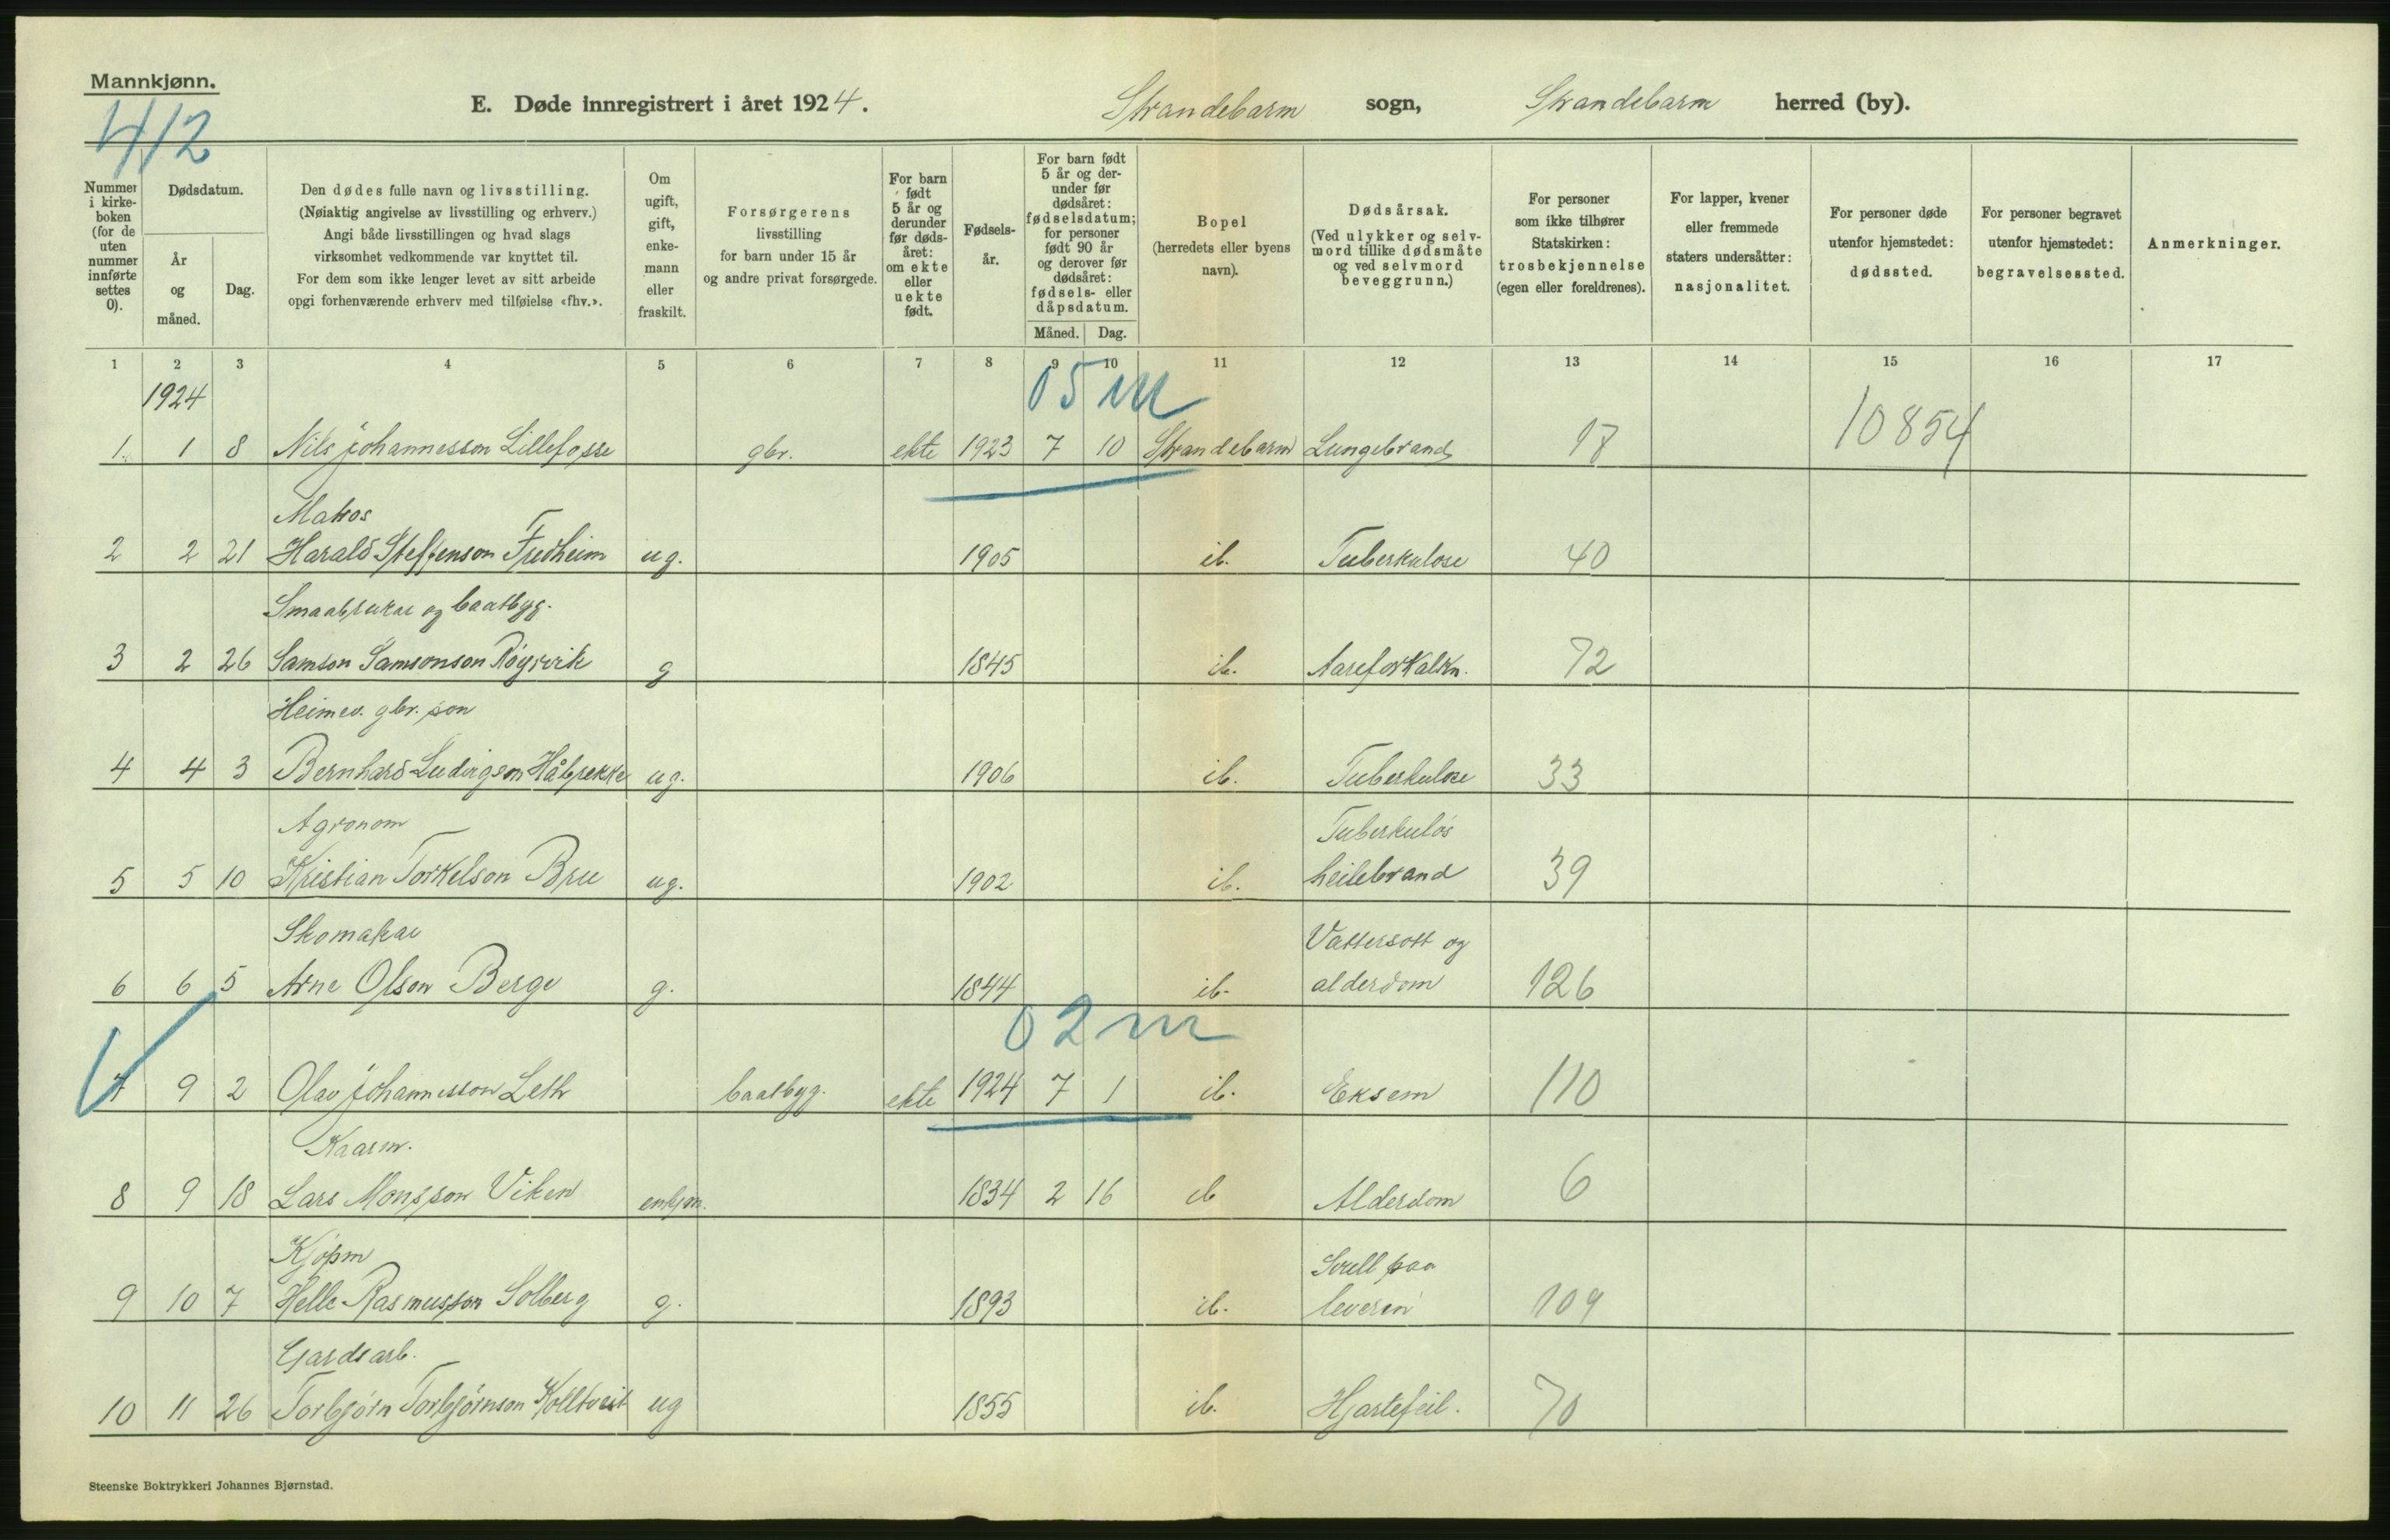 Mannkjønn.
412
E. Døde innregistrert i året 1924. Strandebarm sogn, Strandebarm herred (by).
Nummer i kirkeboken (for de uten nummer innførte settes 0).
Dødsdatum.
År og måned.
Dag.
Den dødes fulle navn og livsstilling.
(Nøiaktig angivelse av livsstilling og erhverv.)
Angi både livsstillingen og hvad slags
virksomhet vedkommende var knyttet til.
For dem som ikke lenger levet av sitt arbeide
opgi forhenværende erhverv med tilføielse «fhv.».
Om ugift, gift, enkemann eller fraskilt.
Forsørgerens
livsstilling
for barn under 15 år
og andre privat forsørgede.
For barn født 5 år og derunder før dødsåret: om ekte eller uekte født.
Fødselsår.
For barn født 5 år og derunder før dødsåret: fødselsdatum; for personer født 90 år og derover før dødsåret: fødsels- eller dåpsdatum.
Måned. Dag.
Bopel
(herredets eller byens
navn).
Dødsårsak.
(Ved ulykker og selvmord tillike dødsmåte og ved selvmord beveggrunn.)
For personer
som ikke tilhører
Statskirken:
trosbekjennelse
(egen eller foreldrenes).
For lapper, kvener
eller fremmede
staters undersåtter:
nasjonalitet.
For personer døde
utenfor hjemstedet:
dødssted.
For personer begravet
utenfor hjemstedet:
begravelsessted.
Anmerkninger.
1 2 3 4 5 6 7 8 9 10 11 12 13 14 15 16 17
1924
05 m
1. 1 8 Nils Johannesson Lillefosse gbr. ekte 1923 7 10 Strandebarm Lungebrand 17 10854
Matros
2 2 21 Harald Steffenson Fredheim ug. 1905 ib. Tuberkulose 40
Smaabrukar og baatbyg.
3 2 26 Samson Samsonson Røyrvik g 1845 ib. Aareforkalkn. 72
Heimev. gbr. son
4 4 3 Bernhard Ludvigson Håbrekke ug. 1906 ib. Tuberkulose 33
Agronom
Tuberkuløs
5 5 10 Kristian Torkelson Bru ug. 1902 ib. heilebrand 39
Skomakar
Vattersott og
6 6 5 Arne Olson Berge g. 1844 ib. alderdom 126
02 m
7 9 2 Olav Johannesson Leth baatbyg. ekte 1924 7 1 ib. Eksem 110
Kaarm.
8 9 18 Lars Monsson Viken enkjm. 1834 2 16 ib Alderdom 6
Kjøpm
Svull paa
9 10 7 Helle Rasmusson Solberg g. 1893 ib. leveren 109
Gardsarb.
10 11 26 Torbjørn Torbjørnson Kolltveit ug 1855 ib. Hjartefeil. 70
Steenske Boktrykkeri Johannes Bjørnstad.